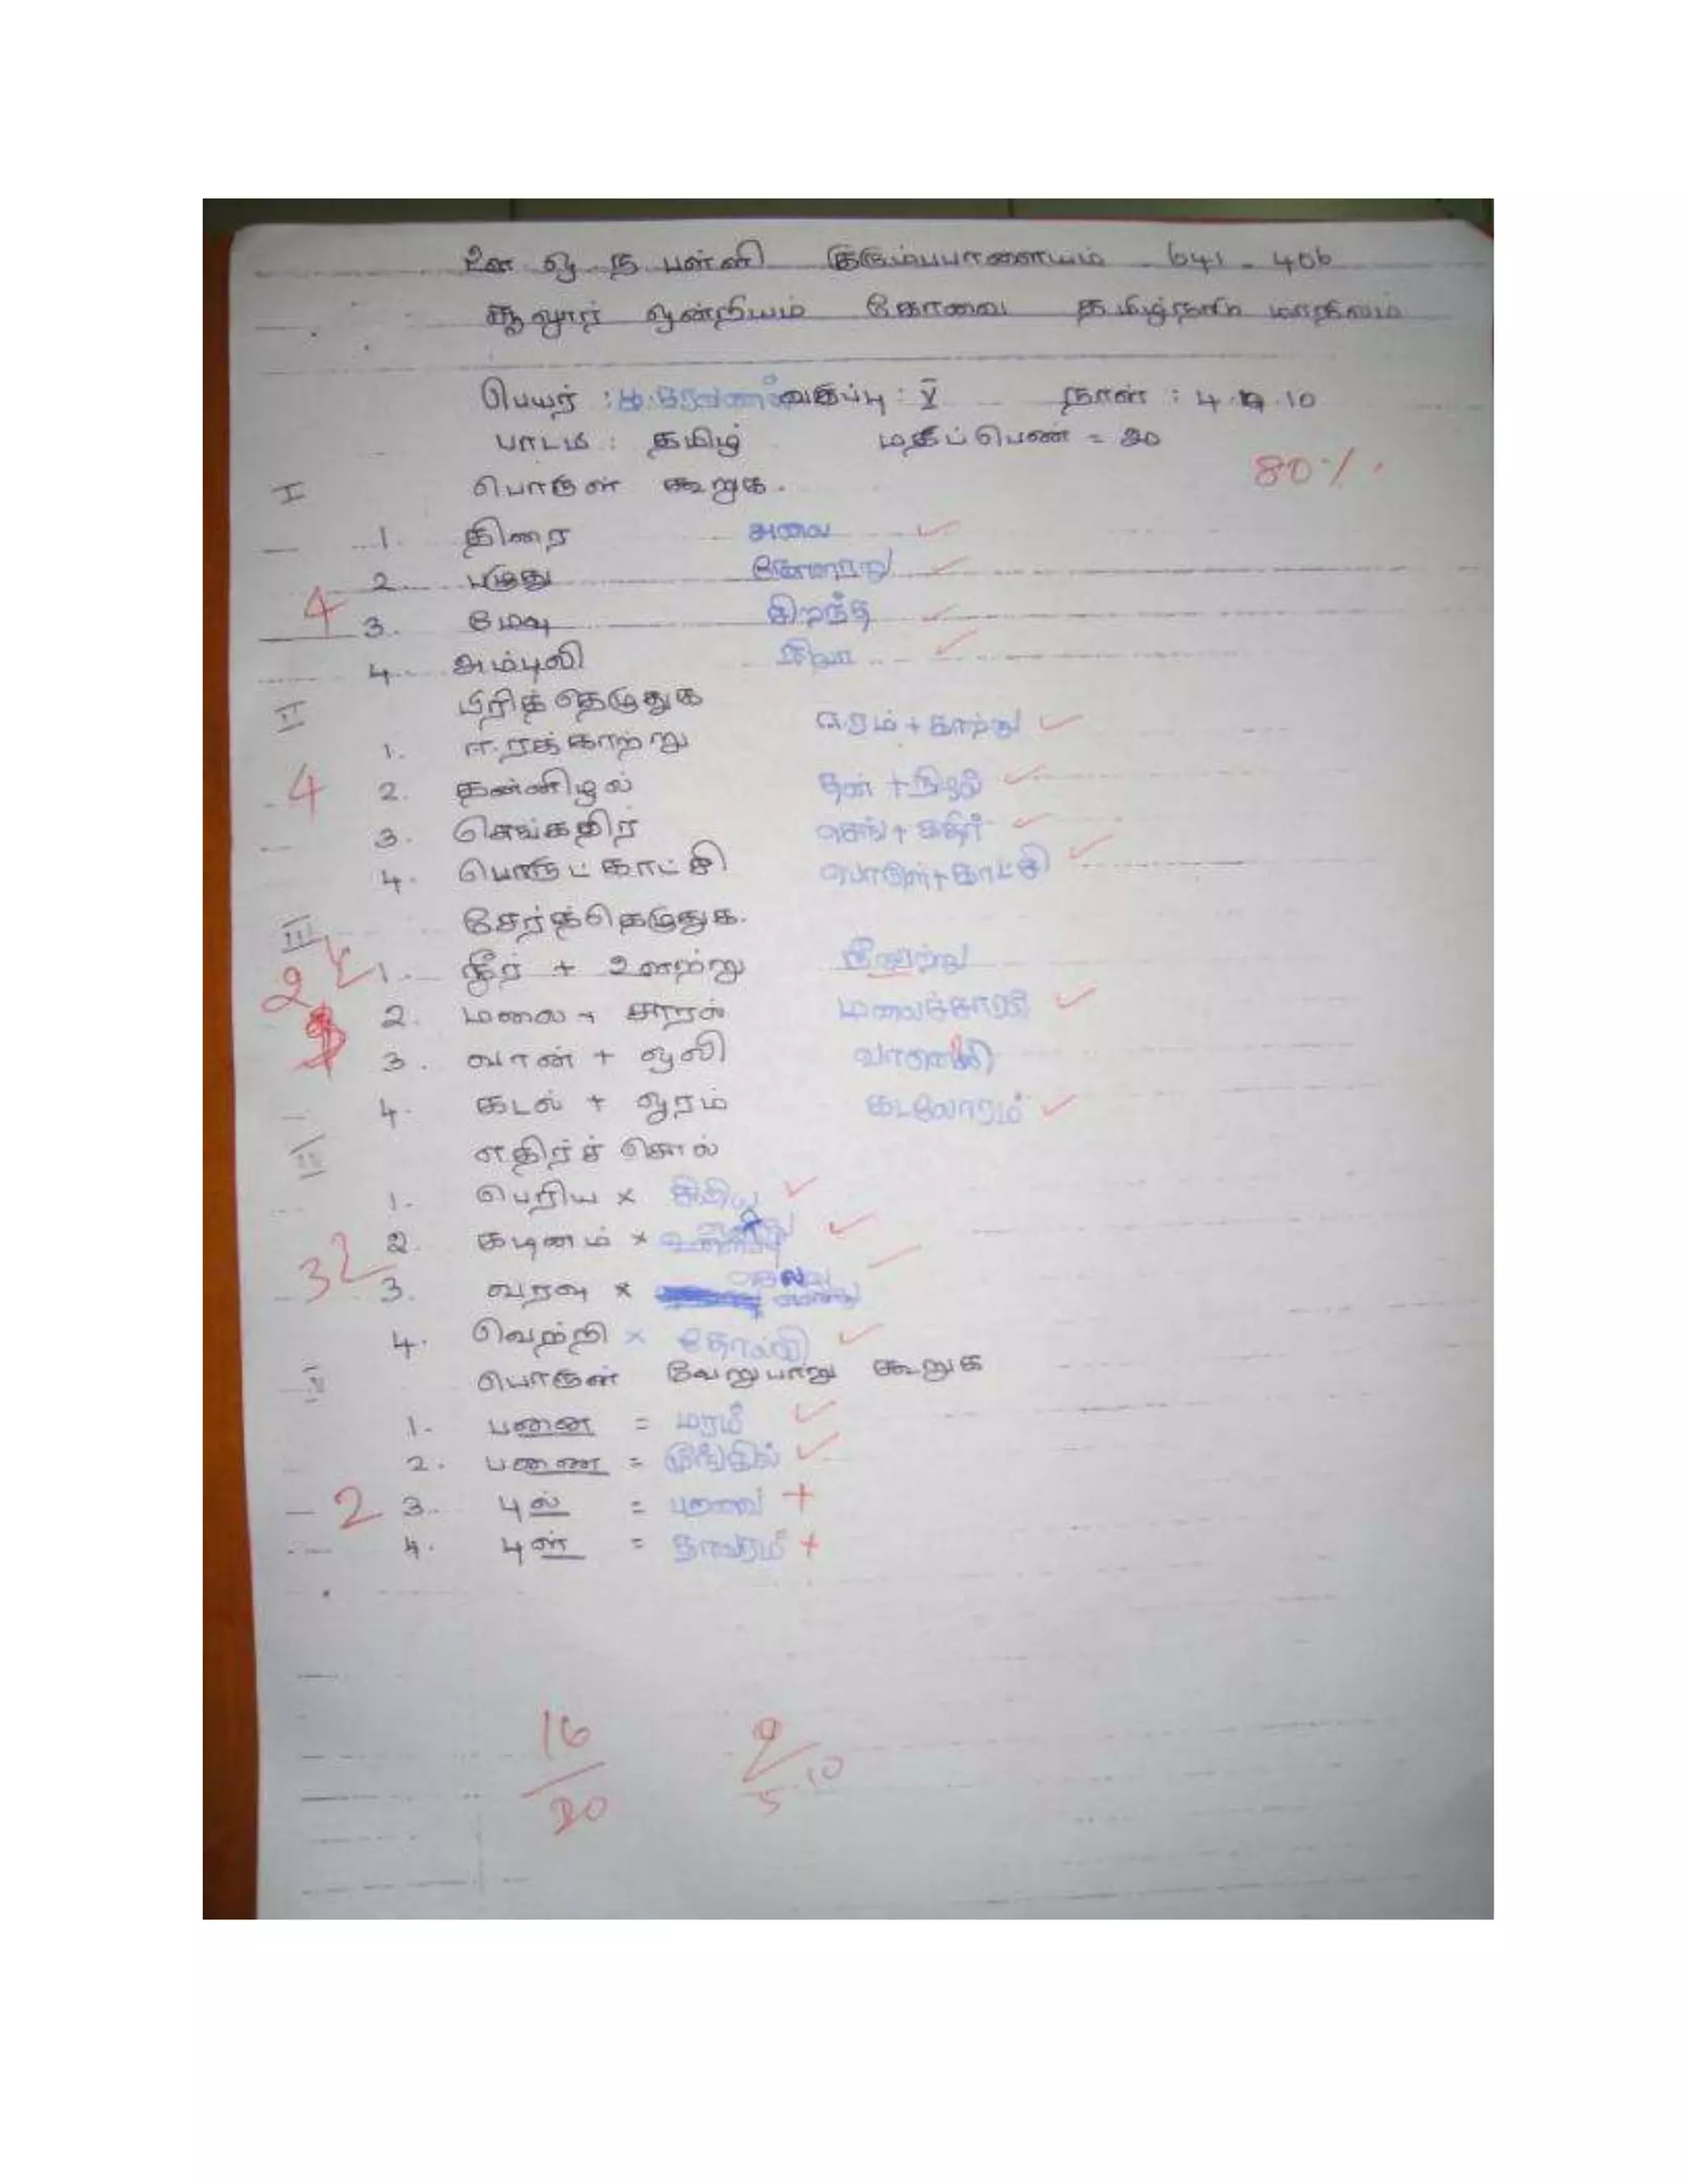 ஊ ஒ ந பள்ளி குரும்பபாளையம் 641-406
சூலூர் ஒன்றியம் கோவை தமிழ்நாடு மாநிலம்
பெயர் : வகுப்பு : V நாள் : 4. .10
பாடம் : தமிழ் மதிப்பெண் = 20
80%
I பொருள் கூறுக.
1. திரை அலை
2. பழுது
4
3. மேவு சிறந்த
4. அம்புலி நிலா
II பிரித்தெழுதுக
1. ஈரக்காற்று ஈரம் + காற்று
4 2. தன்னிழல் தன் + நிழல்
3. செங்கதிர் செங் + கதிர்
4. பொருட்காட்சி பொருள் + காட்சி
III சேர்த்தெழுதுக.
2 1. நீர் + ஊற்று நீரூற்று
2. மலை + சாரல் மலைச்சாரல்
3. வான் + ஒலி
4. கடல் + ஓரம் கடலோரம்
எதிர்ச் சொல்
1. பெரிய × சிறிய
2. கடினம் ×
3 3. வரவு ×
4. வெற்றி × தோல்வி
பொருள் வேறுபாடு கூறுக
1. பனை = மரம்
2. பணை = மூங்கில்
2 3. புல் = பறவை
4. புள் = தாவரம்
16
20
5.10